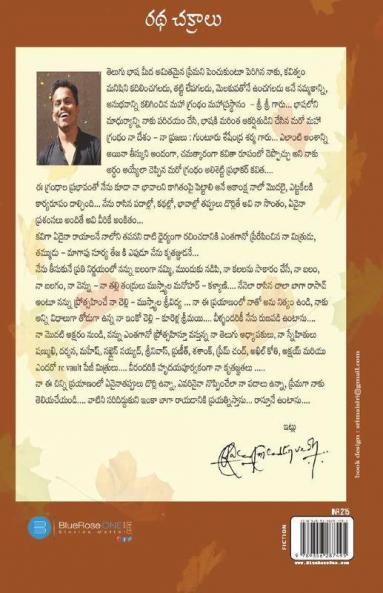 రథ చక్రాలు
తెలుగు భాష మీద అమితమైన ప్రేమని పెంచుకుంటూ పెరిగిన నాకు, కవిత్వం
మనిషిని కదిలించగలదు, తట్టి లేపగలదు, మెలకువతోనే ఉంచగలదు అనే నమ్మకాన్ని,
అనుభూతిని కలిగించిన మహా గ్రంథం మహాప్రస్థానం - శ్రీ శ్రీ గారు... భాషలోని
మాధుర్యాన్ని నాకు పరిచయం చేసి, భాషకి మరింత ఆకర్షితుడిని చేసిన మరో మహా
గ్రంథం నా దేశం - నా ప్రజలు : గుంటూరు శేషేంద్ర శర్మ గారు... ఎలాంటి అంశాన్ని
అయినా తీసుకుని అందంగా, చమత్కారంగా కవితా రూపంలో చెప్పొచ్చు అని నాకు
అర్థం అయ్యేలా చెప్పిన మరో గ్రంథం అలిశెట్టి ప్రభాకర్ కవిత....
ఈ గ్రంథాల ప్రభావంతో నేను కూడా నా భావాలని కాగితంపై పెట్టాలి అనే ఆకాంక్ష నాలో మొదలై, ఎట్టకేలకి
కార్యరూపం దాల్చింది... నేను రాసిన పదాల్లో, కథల్లో, భావాల్లో తప్పులు దొర్లితే అవి నా సొంతం, ఏవైనా
ప్రశంసలు అందితే అవి వీరికే అంకితం...
కవిగా ఏదైనా రాయాలనే నాలోని తపనని దాటి ధైర్యంగా రచించడానికి ఎంతగానో ప్రేరేపించిన నా మిత్రుడు,
తమ్ముడు - మాగాపు సూర్య తేజ కి ఎపుడూ నేను కృతజ్ఞుడనే...
నేను తీసుకునే ప్రతి నిర్ణయంలో నన్ను బలంగా నమ్మి, ముందుకు నడిపి, నా కలలను సాకారం చేసే, నా బలం,
నా బలగం, నా వెన్ను - నా తల్లి తండ్రులు ముస్యాల మనోహర్ - కళ్యాణి.... నేనేదా రాసిన చాలా బాగా రాసావ్
అంటూ నన్ను ప్రోత్సహించే నా చెల్లి - ముస్యాల శ్రీవిద్య ... నా ఈ ప్రయాణంలో నాతో అను నిత్యం ఉండి, నాకు
అన్ని విధాలుగా తోడుగా ఉన్న నా ఇంకో చెల్లి - కూరెళ్ల శ్రీమయి.... వీళ్ళందరికీ నేను రుణపడి ఉంటాను....
నా మొదటి అక్షరం నుండి, నన్ను ఎంతగానో ప్రోత్సహిస్తూ వస్తున్న నా తెలుగు అధ్యాపకులు, నా స్నేహితులు
షణ్ముఖి, దర్శన, మహేష్, సజ్జెన్ నయ్యర్, శ్రీనివాస్, ప్రణీత్, శశాంక్, ప్రేమ్ చంద్, అఖిల్ కోఠి, అక్షయ్ మరియు
ఎందరో rc vault పేజీ మిత్రులు.... వీరందరికి హృదయపూర్వకంగా నా కృతజ్ఞతలు .....
నా ఈ చిన్ని ప్రయాణంలో ఏవైనాతప్పులు దొర్లి ఉన్నా, ఎవరినైనా నొప్పించేలా నా పదాలు ఉన్నా, ప్రేమగా నాకు
తెలియచేయండి.... వాటిని సరిదిద్దుకుని ఇంకా బాగా రాయడానికి ప్రయత్నిస్తాను... రాస్తూనే ఉంటాను....
ఇట్లు
book design : srimaisri@gmail.com
BlueRose ONE
Stories Matter
FICTION
INR 215
www.BlueRoseOne.com